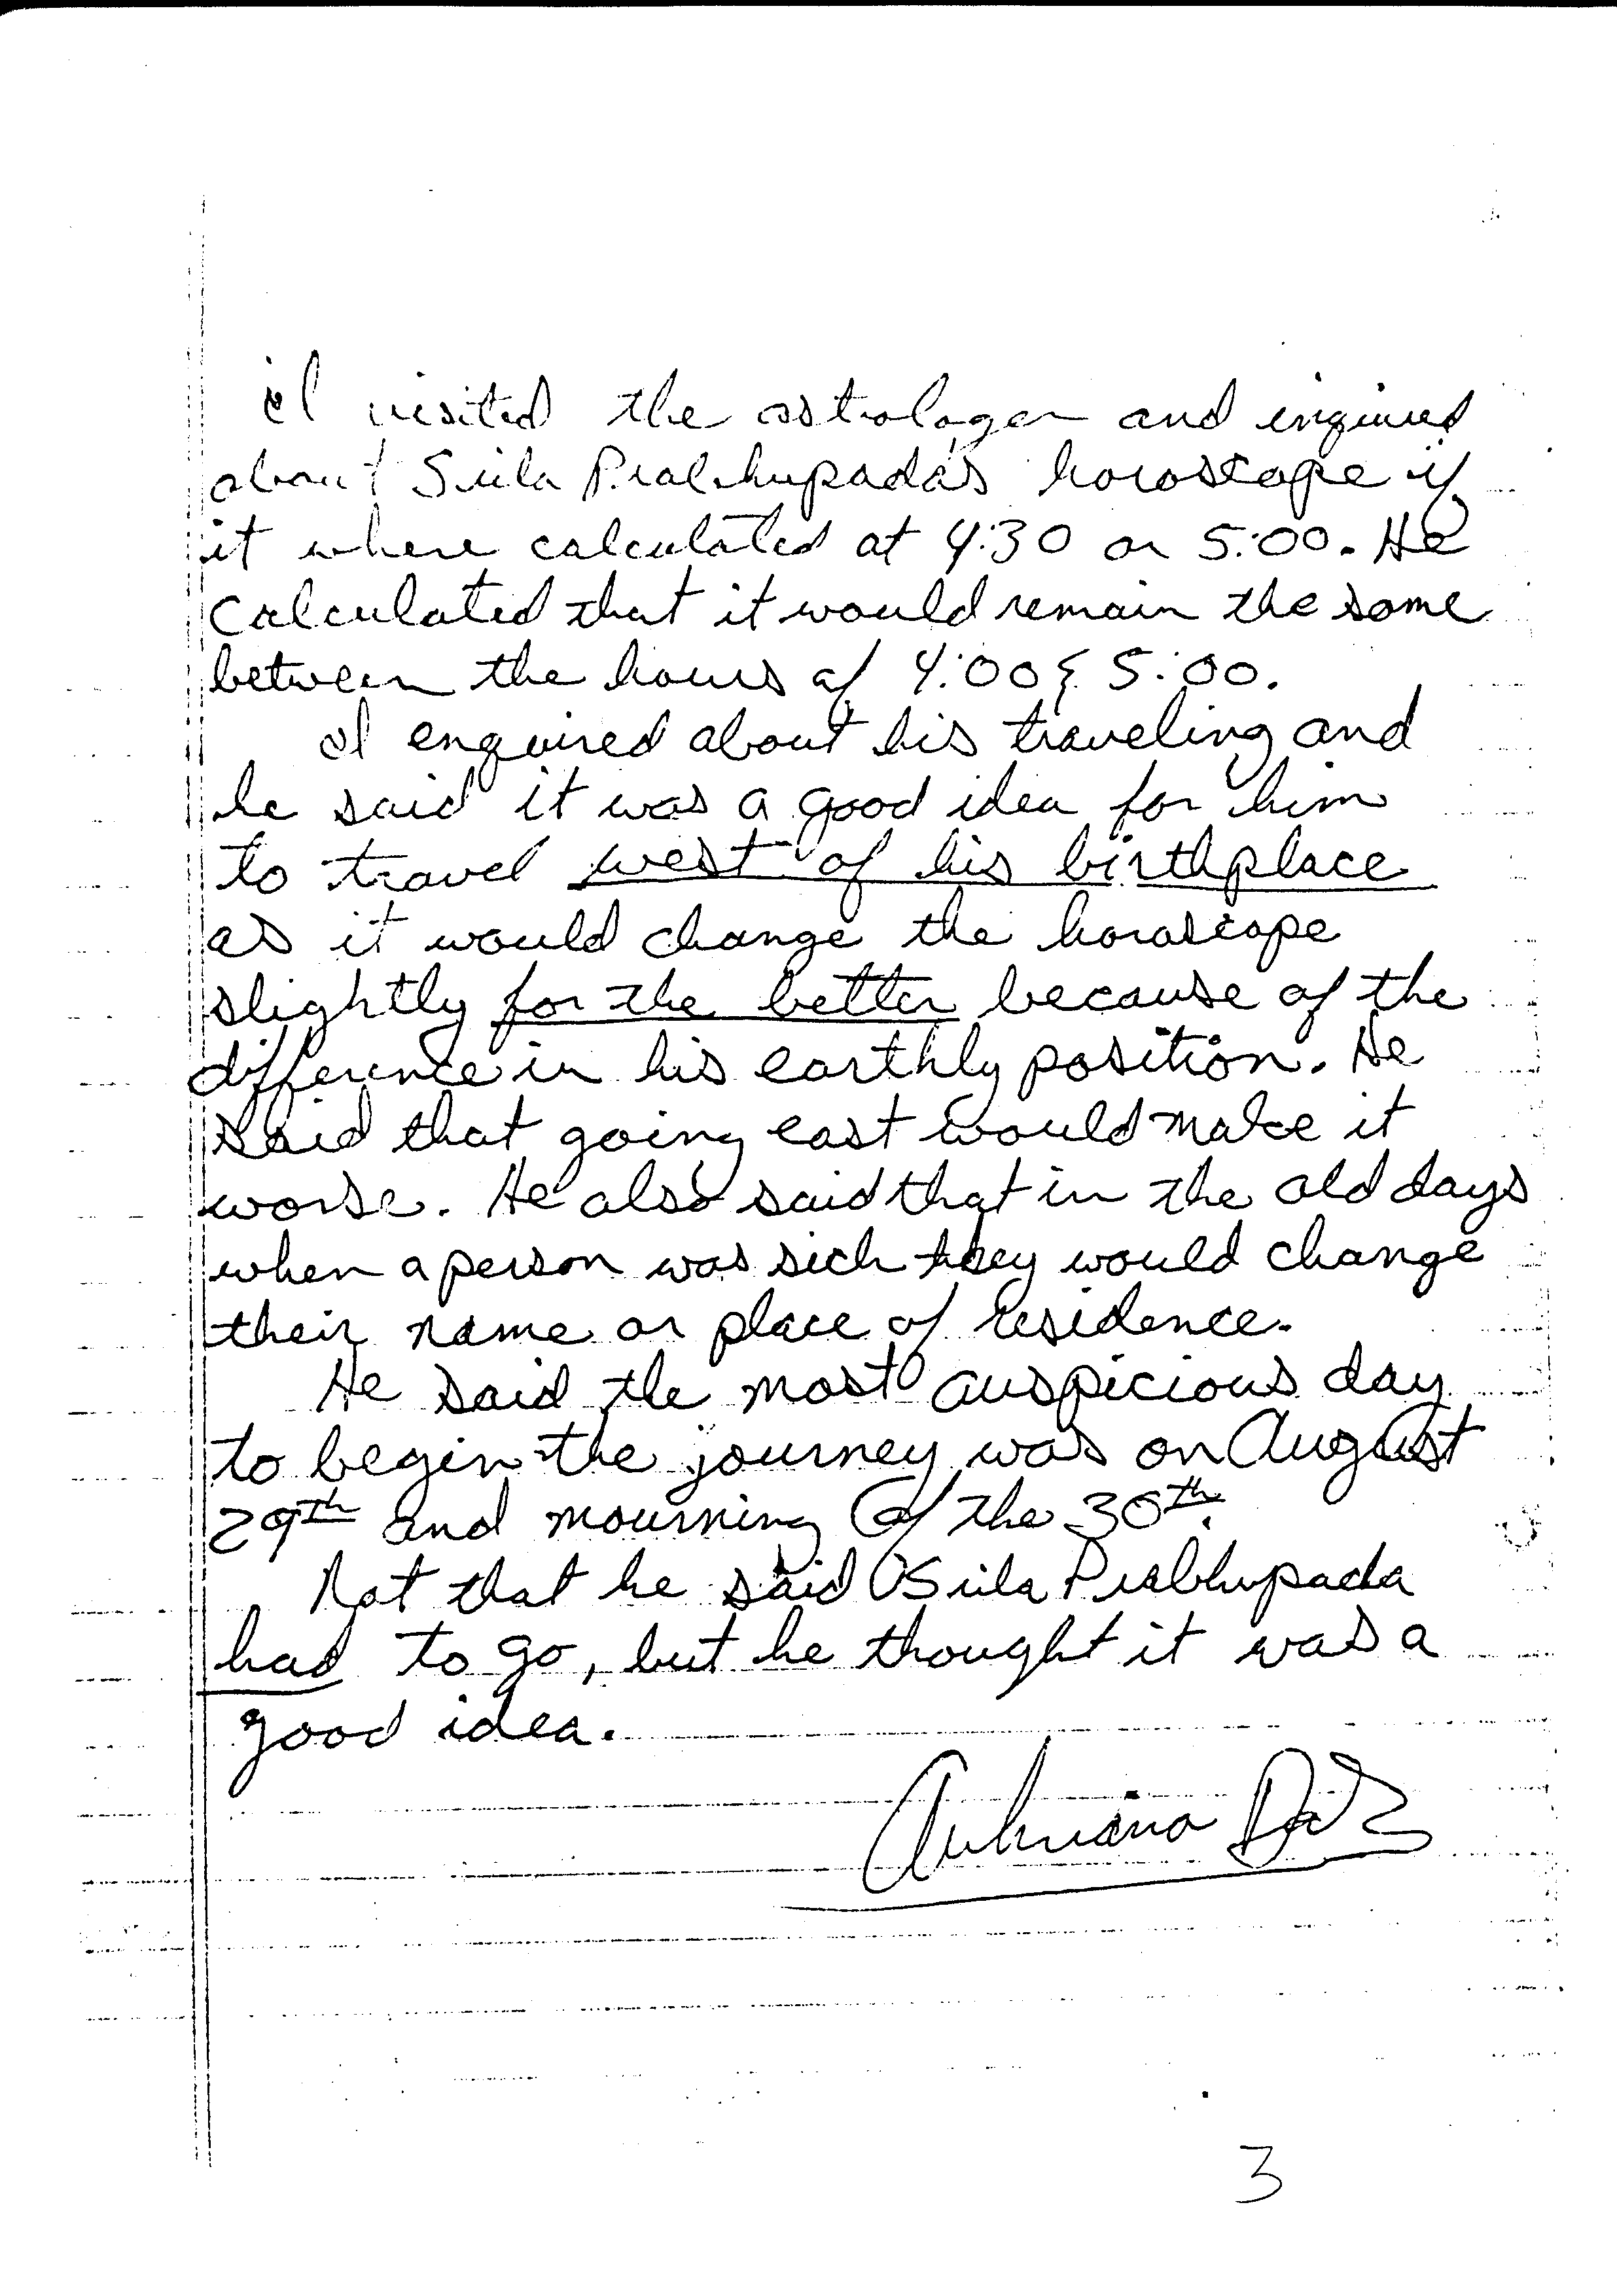 I visited the astrologer and enquired
about Srila Prabhupada's horoscope if
it where calculated at 4:30 or 5:00. He
calculated that it would remain the same
between the hours of 4:00 & 5:00.
I enquired about his traveling and
he said it was a good idea for him
to travel west of his birthplace
as it would change the horoscope
slightly for the better because of the
difference in his earthly position. He
said that going east would make it
worse. He also said that in the old days
when a person was sick they would change
their name or place of residence.
He said the most auspicious day
to begin the journey was on August
29th and mourning of the 30th.
Not that he said Srila Prabhupada
had to go, but he thought it was a
good idea.
3